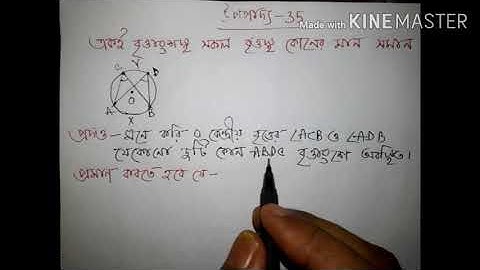 উপপাদ্য-35
Made with KINEMASTER
একই বৃত্তাংশস্থ সকল বৃত্তস্থ কোনের মান সমান
C Y D
O
A B
X
প্রদত্ত - মনে করি O কেন্দ্রীয় বৃত্তের ∠ACB ও ∠ADB
যেকোনো দুটি কোন ABDC বৃত্তাংশে অবস্থিত।
প্রমান করতে হবে যে-